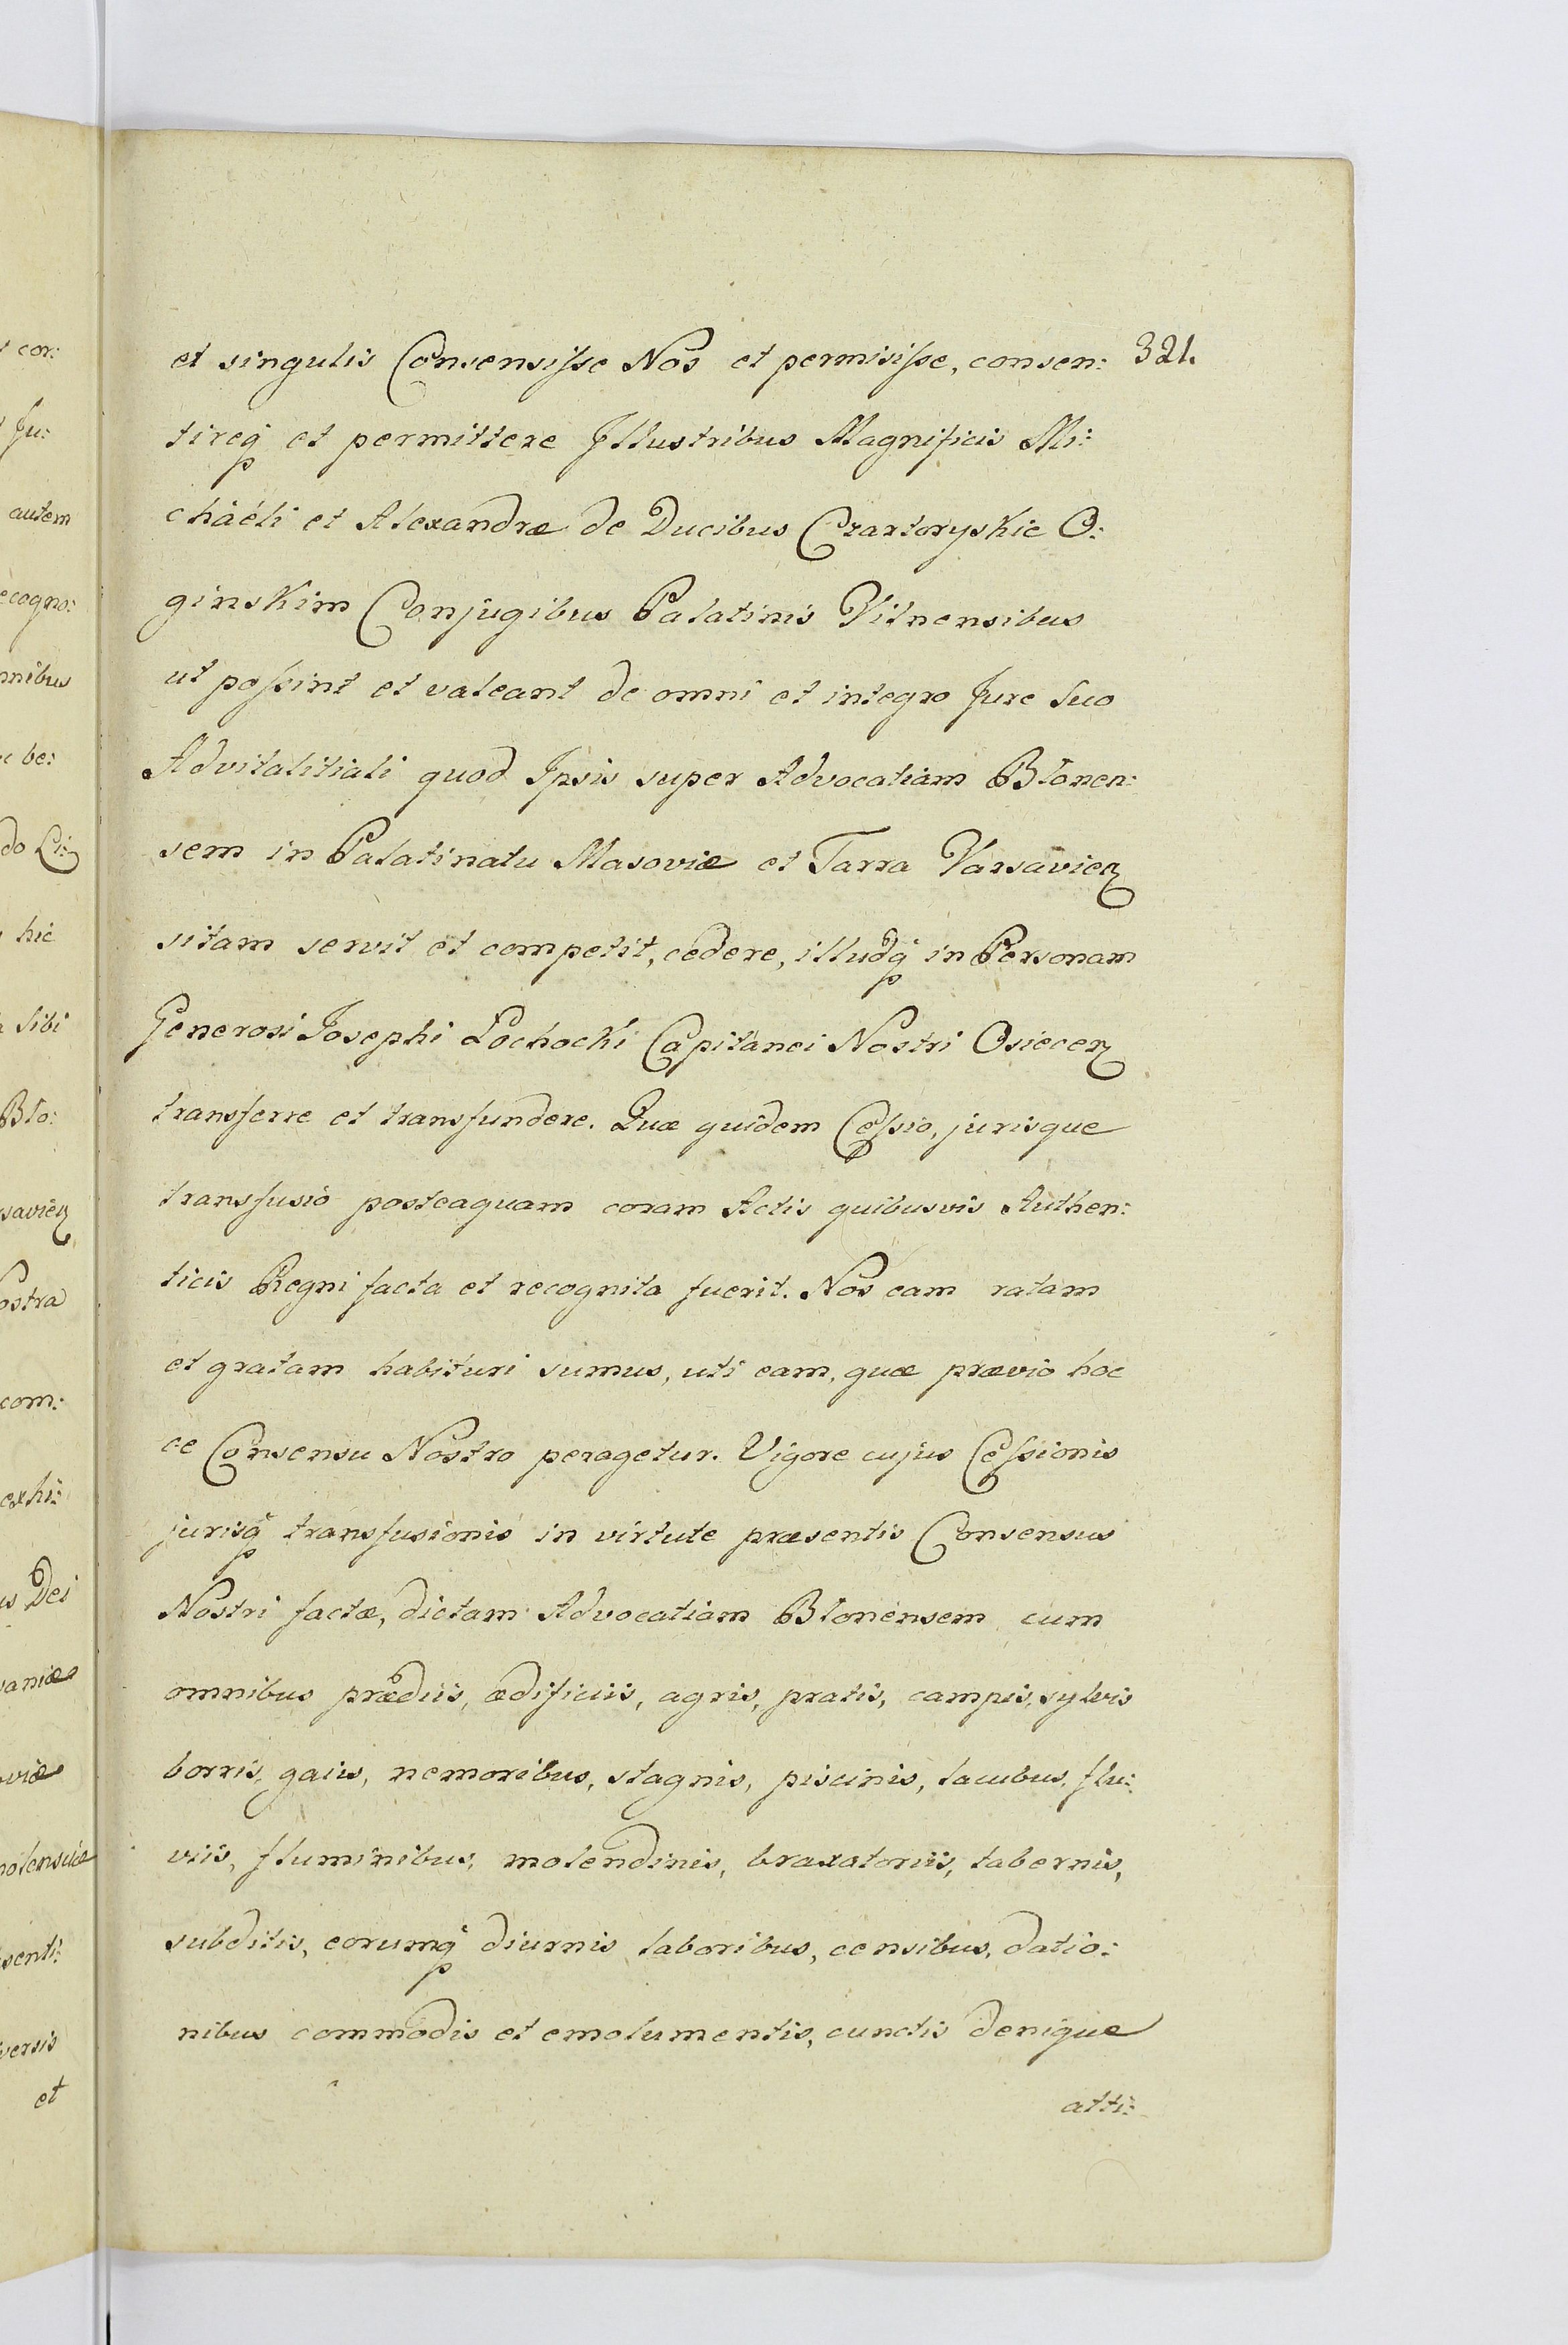 et singulis Consensisse Nos et permisisse, consen: 321.
tireq́ et permittere Illustribus Magnificis Mi:
chaéli et Alexandræ de Ducibus Czartoryskie O:
ginskim Conjugibus Palatinis Vilnensibus
ut possint et valeant de omni et integro Jure Suo
Advitalitiali quod Ipsis super Advocatiam Blonen:
sem in Palatinatu Masoviæ et Tarra Varsavień
sitam servit et competit, cedere, illudq́ in Personam
Generosi Josephi Lochocki Capitanei Nostri Osiecen
transferre et transfundere. Quæ quidem Cessio, jurisque
transfusio posteaquam coram Actis quibusvis Authen:
ticis Regni facta et recognita fuerit. Nos eam ratam
et gratam habituri sumus, uti eam, quæ prævio hoc
ce Consensu Nostro peragetur. Vigore cujus Cessionis
jurisq́ transfusionis in virtute præsentis Consensus
Nostri factæ, dictam Advocatiam Blonensem cum
omnibus prædiis, ædificiis, agris, pratis, campis, sylvis
borris, gaiis, nemoribus, stagnis, piscinis, lacubus, flu:
viis, fluminibus, molendinis, braxatoriis, tabernis,
subditis, eorumq́ diurnis laboribus, censibus, datio:
nibus commodis et emolumentis, cunctis denique
atti: